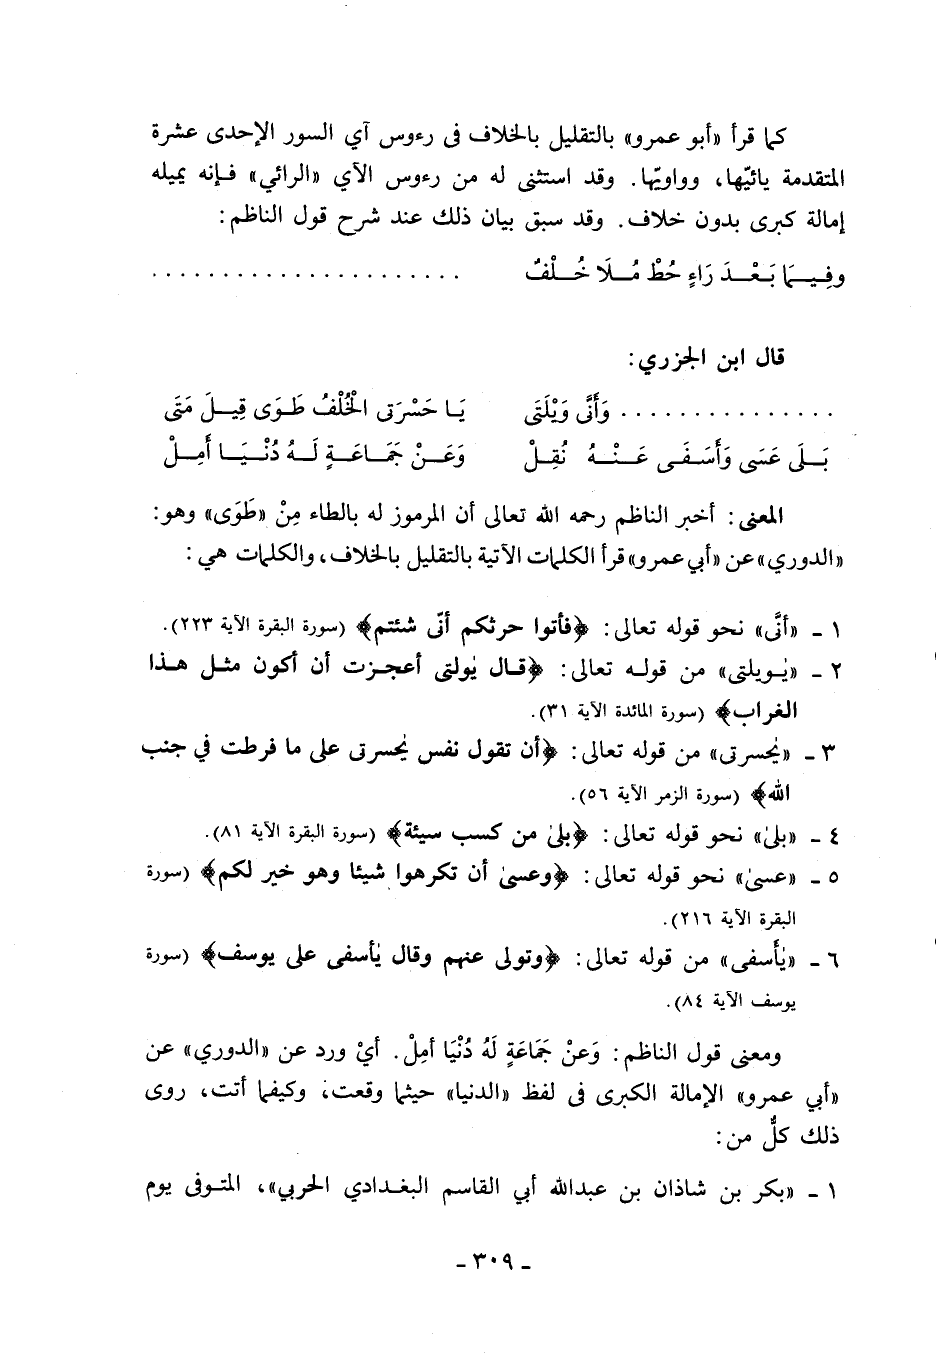 كما قرأ «أبو عمرو» بالتقليل بالخلاف فى رءوس آي السور الإحدى عشرة
المتقدمة يائيّها، وواويّها. وقد استثنى له من رءوس الآي «الرائي» فإنه يميله
إمالة كبرى بدون خلاف. وقد سبق بيان ذلك عند شرح قول الناظم:
وفِيـمَا بَعْدَ رَاءٍ حُطْ مُلَا خُلْفٌ ......................
قال ابن الجزري:
............... وَأَنَّى وَيْلَتَى يَا حَسْرَتَى الْخُلْفُ طَوَى قِيلَ مَتَى
بَلَى عَسَى وَأَسَفَى عَنْهُ نُقِلْ وَعَنْ جَمَاعَةٍ لَهُ دُنْيَا أَمِلْ
المعنى: أخبر الناظم رحمه الله تعالى أن المرموز له بالطاء مِنْ «طَوَى» وهو:
«الدوري» عن «أبي عمرو» قرأ الكلمات الآتية بالتقليل بالخلاف، والكلمات هي:
١ ـ «أنَّى» نحو قوله تعالى: ﴿فأتوا حرثكم أنّى شئتم﴾ (سورة البقرة الآية ٢٢٣).
٢ ـ «يٰويلتى» من قوله تعالى: ﴿قال يٰولتى أعجزت أن أكون مثل هذا
الغراب﴾ (سورة المائدة الآية ٣١).
٣ ـ «يٰحسرتى» من قوله تعالى: ﴿أن تقول نفس يٰحسرتى على ما فرطت في جنب
الله﴾ (سورة الزمر الآية ٥٦).
٤ ـ «بلىٰ» نحو قوله تعالى: ﴿بلىٰ من كسب سيئة﴾ (سورة البقرة الآية ٨١).
٥ ـ «عسىٰ» نحو قوله تعالى: ﴿وعسىٰ أن تكرهوا شيئا وهو خير لكم﴾ (سورة
البقرة الآية ٢١٦).
٦ ـ «يٰأسفى» من قوله تعالى: ﴿وتولى عنهم وقال يٰأسفى على يوسف﴾ (سورة
يوسف الآية ٨٤).
ومعنى قول الناظم: وَعَنْ جَمَاعَةٍ لَهُ دُنْيَا أمِلْ. أيْ ورد عن «الدوري» عن
«أبي عمرو» الإمالة الكبرى فى لفظ «الدنيا» حيثما وقعت، وكيفما أتت، روى
ذلك كلٌّ من:
١ ـ «بكر بن شاذان بن عبدالله أبي القاسم البغدادي الحربي»، المتوفى يوم
ـ ٣٠٩ ـ